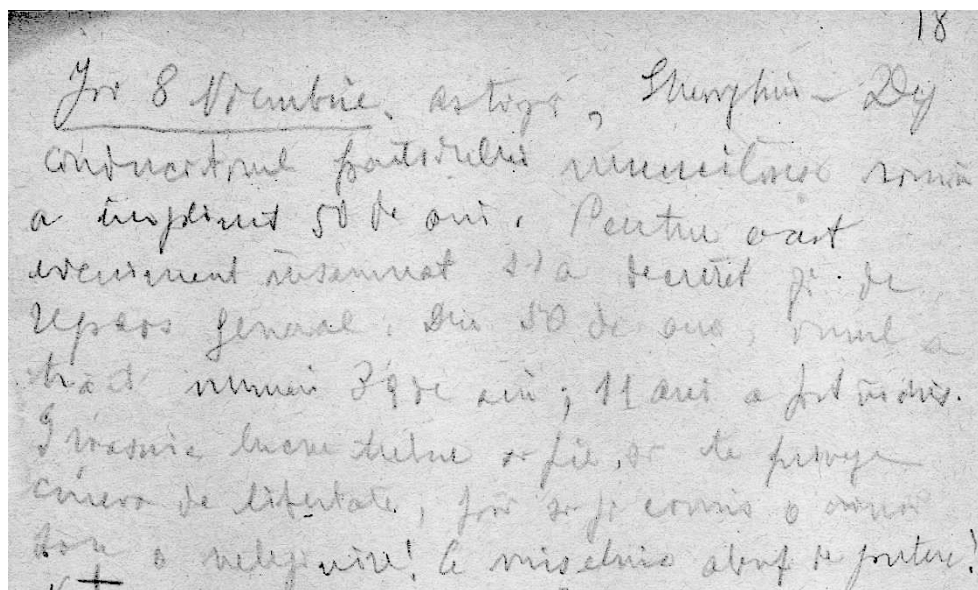 18
Joi 8 Noembrie. astăzi, Gheorghiu - Dej
conducătorul partidului muncitoresc român
a împlinit 50 de ani. Pentru acest
eveniment însemnat s'a decretat zi de
repaos general. Din 50 de ani, omul a
trăit numai 39 de ani; 11 ani a fost închis.
Groaznic lucru trebue să fie, să te priveze
cineva de libertate, fără să fi comis o crimă
sau o nelegiuire! Ce mișelnic abuz de putere!